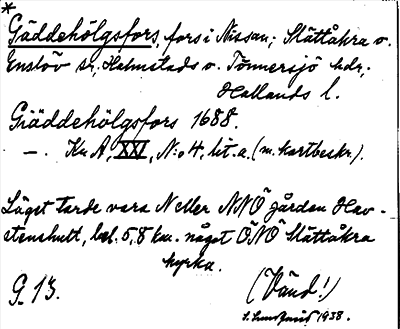 *
Gäddehölgsfors, fors i Nissan; Slättåkra o.
Enslöv sr, Halmstads o. Tönnersjö hdr,
Hallands l.
Gräddehölgsfors 1688.
—. Ka A, XXI, N:o 4, lit. a. (m. kartbeskr.).
Läget torde vara N eller NNÖ gården Hav-
stenshult, bel. 5,8 km. något ÖNÖ Slättåkra
kyrka.
G. 13.
(Vänd!)
1938.